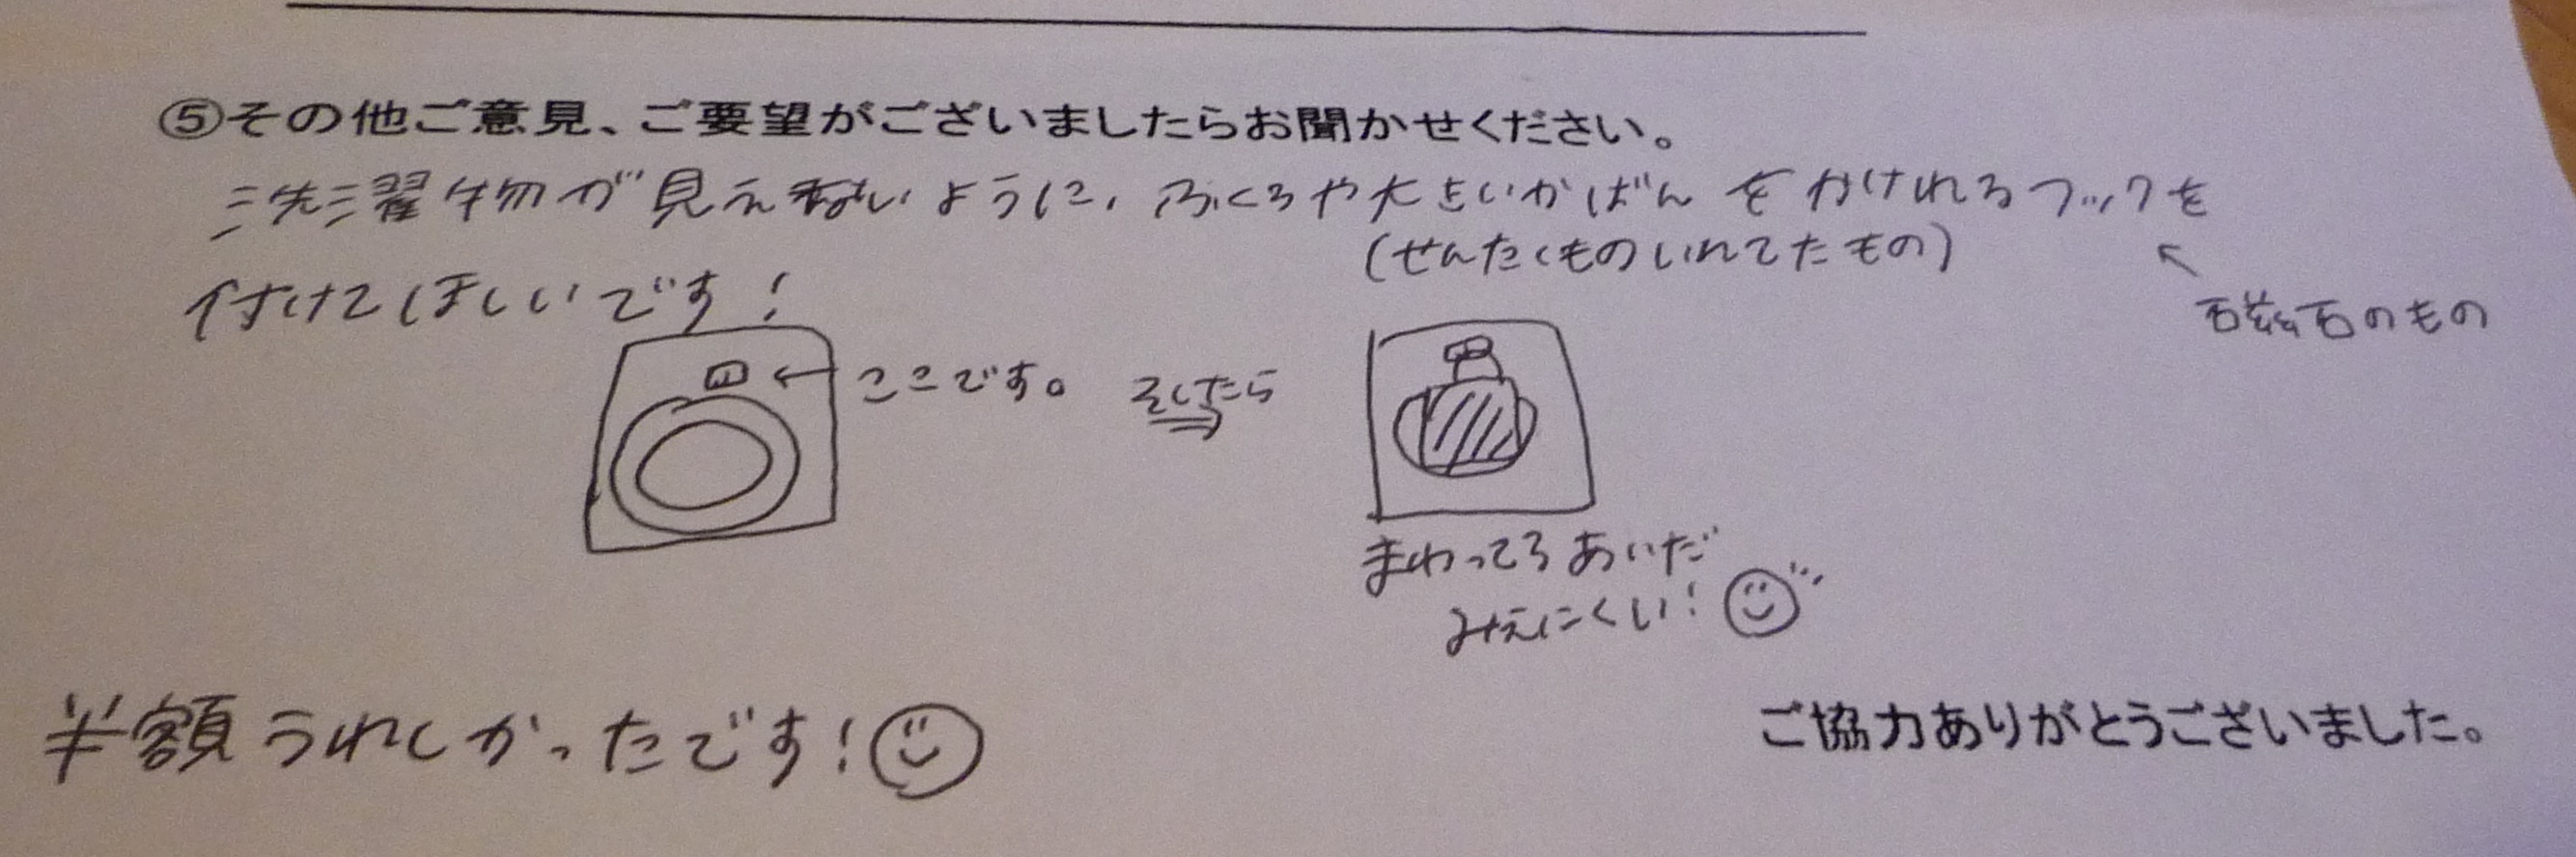 ⑤その他ご意見、ご要望がございましたらお聞かせください。
洗濯物が見えないように、ふくろや大きいかばんをかけれるフックを
(せんたくものいれてたもの)
磁石のもの
付けてほしいです!
ここです。
そしたら
まわってるあいだ
みえにくい!
半額うれしかったです!
ご協力ありがとうございました。